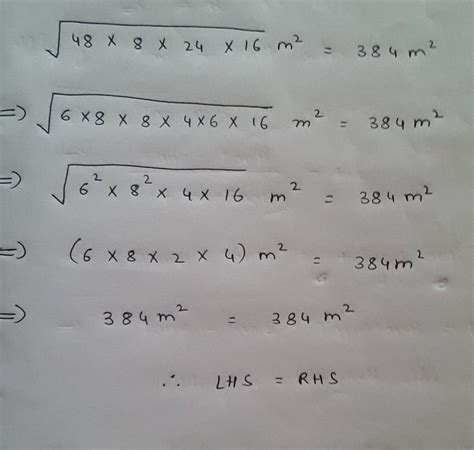 √48 × 8 × 24 × 16 m² = 384 m²
=> √6 × 8 × 8 × 4 × 6 × 16 m² = 384 m²
=> √6² × 8² × 4 × 16 m² = 384 m²
=> (6 × 8 × 2 × 4) m² = 384 m²
=> 384 m² = 384 m²
∴ LHS = RHS